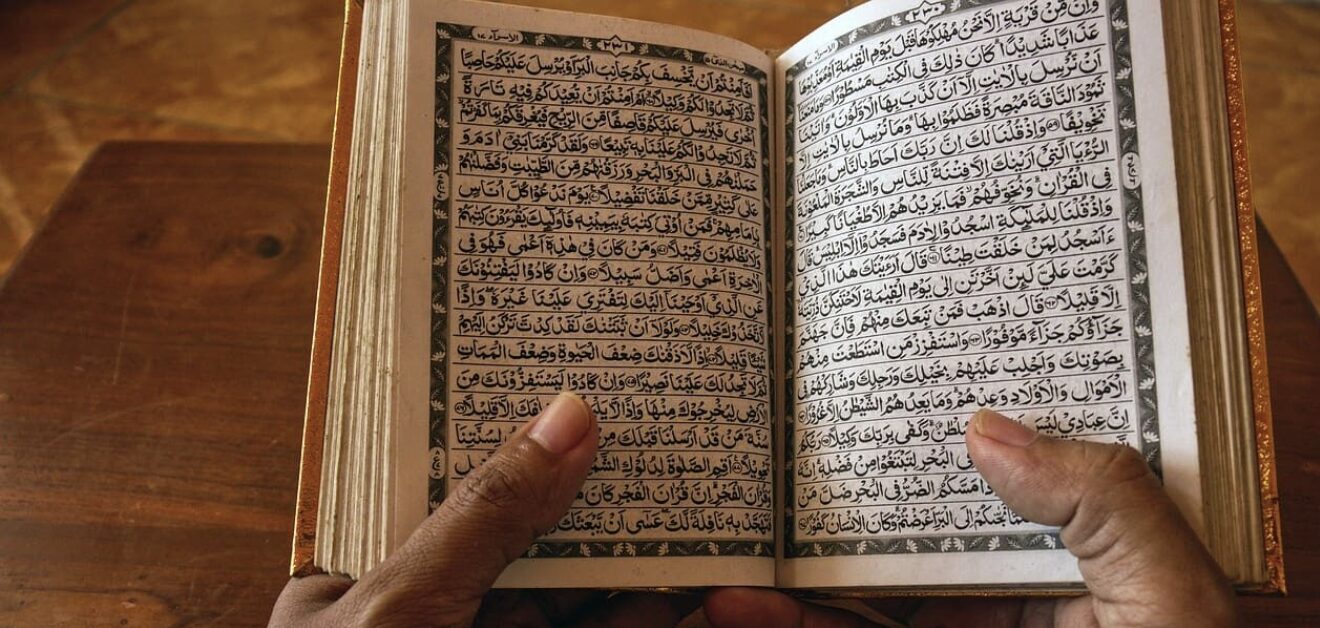 الاسرآء ١٧ ٢٣٠
وَاِنْ مِّنْ قَرْيَةٍ اِلَّا نَحْنُ مُهْلِكُوْهَا قَبْلَ يَوْمِ الْقِيٰمَةِ اَوْ مُعَذِّبُوْهَا
عَذَابًا شَدِيْدًا ؕ كَانَ ذٰلِكَ فِي الْكِتٰبِ مَسْطُوْرًا ﴿٥٨﴾ وَمَا مَنَعَنَا
اَنْ نُّرْسِلَ بِالْاٰيٰتِ اِلَّا اَنْ كَذَّبَ بِهَا الْاَوَّلُوْنَ ؕ وَاٰتَيْنَا
ثَمُوْدَ النَّاقَةَ مُبْصِرَةً فَظَلَمُوْا بِهَا ؕ وَمَا نُرْسِلُ بِالْاٰيٰتِ اِلَّا
تَخْوِيْفًا ﴿٥٩﴾ وَاِذْ قُلْنَا لَكَ اِنَّ رَبَّكَ اَحَاطَ بِالنَّاسِ ؕ وَمَا جَعَلْنَا
الرُّءْيَا الَّتِيْٓ اَرَيْنٰكَ اِلَّا فِتْنَةً لِّلنَّاسِ وَالشَّجَرَةَ الْمَلْعُوْنَةَ
فِي الْقُرْاٰنِ ؕ وَنُخَوِّفُهُمْ ۙ فَمَا يَزِيْدُهُمْ اِلَّا طُغْيَانًا كَبِيْرًا ﴿٦٠﴾
وَاِذْ قُلْنَا لِلْمَلٰٓئِكَةِ اسْجُدُوْا لِاٰدَمَ فَسَجَدُوْٓا اِلَّآ اِبْلِيْسَ ؕ قَالَ
ءَاَسْجُدُ لِمَنْ خَلَقْتَ طِيْنًا ﴿٦١﴾ قَالَ اَرَءَيْتَكَ هٰذَا الَّذِيْ
كَرَّمْتَ عَلَيَّ لَئِنْ اَخَّرْتَنِ اِلٰى يَوْمِ الْقِيٰمَةِ لَاَحْتَنِكَنَّ ذُرِّيَّتَهٗٓ
اِلَّا قَلِيْلًا ﴿٦٢﴾ قَالَ اذْهَبْ فَمَنْ تَبِعَكَ مِنْهُمْ فَاِنَّ جَهَنَّمَ
جَزَآؤُكُمْ جَزَآءً مَّوْفُوْرًا ﴿٦٣﴾ وَاسْتَفْزِزْ مَنِ اسْتَطَعْتَ مِنْهُمْ
بِصَوْتِكَ وَاَجْلِبْ عَلَيْهِمْ بِخَيْلِكَ وَرَجِلِكَ وَشَارِكْهُمْ فِى
الْاَمْوَالِ وَالْاَوْلَادِ وَعِدْهُمْ ؕ وَمَا يَعِدُهُمُ الشَّيْطٰنُ اِلَّا غُرُوْرًا ﴿٦٤﴾
اِنَّ عِبَادِيْ لَيْسَ سُلْطٰنٌ ؕ وَكَفٰى بِرَبِّكَ وَكِيْلًا ﴿٦٥﴾ رَبُّكُمُ
فِى الْبَحْرِ لِتَبْتَغُوْا مِنْ فَضْلِهٖ ؕ اِنَّهٗ
مَسَّكُمُ الضُّرُّ فِى الْبَحْرِ ضَلَّ مَنْ
نَجّٰىكُمْ اِلَى الْبَرِّ اَعْرَضْتُمْ ؕ وَكَانَ الْاِنْسَانُ كَفُوْرًا ﴿٦٧﴾
الاسرآء ١٧ ٢٣١ سبحٰن الذى ١٥
اَفَاَمِنْتُمْ اَنْ يَّخْسِفَ بِكُمْ جَانِبَ الْبَرِّ اَوْ يُرْسِلَ عَلَيْكُمْ حَاصِبًا
ثُمَّ لَا تَجِدُوْا لَكُمْ وَكِيْلًا ﴿٦٨﴾ اَمْ اَمِنْتُمْ اَنْ يُّعِيْدَكُمْ فِيْهِ تَارَةً
اُخْرٰى فَيُرْسِلَ عَلَيْكُمْ قَاصِفًا مِّنَ الرِّيْحِ فَيُغْرِقَكُمْ بِمَا كَفَرْتُمْ
ثُمَّ لَا تَجِدُوْا لَكُمْ عَلَيْنَا بِهٖ تَبِيْعًا ﴿٦٩﴾ وَلَقَدْ كَرَّمْنَا بَنِيْٓ اٰدَمَ وَ
حَمَلْنٰهُمْ فِى الْبَرِّ وَالْبَحْرِ وَرَزَقْنٰهُمْ مِّنَ الطَّيِّبٰتِ وَفَضَّلْنٰهُمْ
عَلٰى كَثِيْرٍ مِّمَّنْ خَلَقْنَا تَفْضِيْلًا ﴿٧٠﴾ يَوْمَ نَدْعُوْا كُلَّ اُنَاسٍ
بِاِمَامِهِمْ ۚ فَمَنْ اُوْتِيَ كِتٰبَهٗ بِيَمِيْنِهٖ فَاُولٰٓئِكَ يَقْرَءُوْنَ كِتٰبَهُمْ
وَلَا يُظْلَمُوْنَ فَتِيْلًا ﴿٧١﴾ وَمَنْ كَانَ فِيْ هٰذِهٖٓ اَعْمٰى فَهُوَ فِى
الْاٰخِرَةِ اَعْمٰى وَاَضَلُّ سَبِيْلًا ﴿٧٢﴾ وَاِنْ كَادُوْا لَيَفْتِنُوْنَكَ
عَنِ الَّذِيْٓ اَوْحَيْنَآ اِلَيْكَ لِتَفْتَرِيَ عَلَيْنَا غَيْرَهٗ ۖ وَاِذًا
لَّاتَّخَذُوْكَ خَلِيْلًا ﴿٧٣﴾ وَلَوْلَآ اَنْ ثَبَّتْنٰكَ لَقَدْ كِدْتَّ تَرْكَنُ اِلَيْهِمْ
شَيْئًا قَلِيْلًا ﴿٧٤﴾ اِذًا لَّاَذَقْنٰكَ ضِعْفَ الْحَيٰوةِ وَضِعْفَ الْمَمَاتِ
ثُمَّ لَا تَجِدُ لَكَ عَلَيْنَا نَصِيْرًا ﴿٧٥﴾ وَاِنْ كَادُوْا لَيَسْتَفِزُّوْنَكَ مِنَ
الْاَرْضِ لِيُخْرِجُوْكَ مِنْهَا وَاِذًا لَّا اِلَّا قَلِيْلًا ﴿٧٦﴾
سُنَّةَ مَنْ قَدْ اَرْسَلْنَا قَبْلَكَ مِنْ لِسُنَّتِنَا
تَحْوِيْلًا ﴿٧٧﴾ اَقِمِ الصَّلٰوةَ لِدُلُوْكِ الشَّمْسِ
وَقُرْاٰنَ الْفَجْرِ ؕ اِنَّ قُرْاٰنَ الْفَجْرِ كَانَ
فَتَهَجَّدْ بِهٖ نَافِلَةً لَّكَ ۖ عَسٰٓى اَنْ يَّبْعَثَكَ